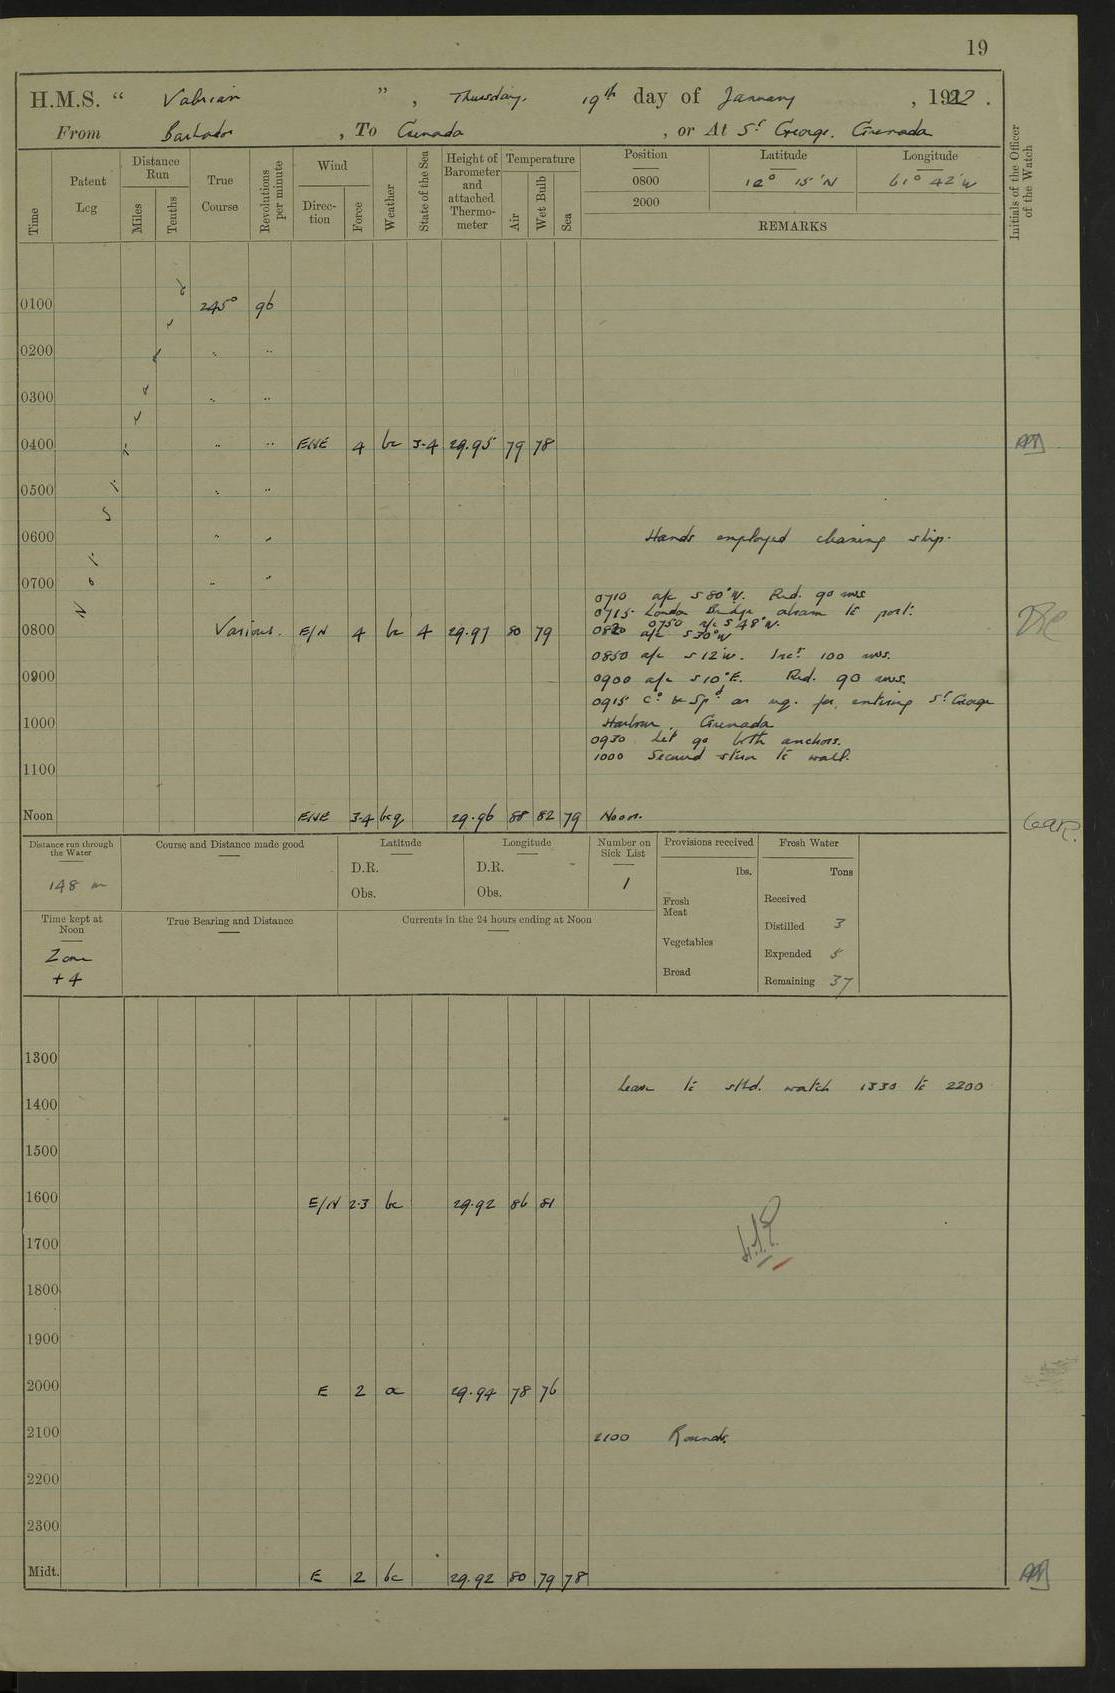 19
H.M.S. “ Valerian ” , Thursday, 19th day of January , 1922 .
From Barbados , To Grenada , or At St George, Grenada
Time
Patent Log
Distance Run
Miles
Tenths
True Course
Revolutions per minute
Wind
Direction
Force
Weather
State of the Sea
Height of Barometer and attached Thermometer
Temperature
Air
Wet Bulb
Sea
Position Latitude Longitude
0800 12° 15'N 61° 42'W
2000
REMARKS
Initials of the Officer of the Watch
0100 245° 96
0200 " "
0300 " "
0400 " " ENE 4 bc 3-4 29.95 79 78
0500 " "
0600 " " Hands employed cleaning ship.
0700 " "
0710 a/c S 80°W. Red. 90 revs
0715 London Bridge abeam to port.
0750 a/c S 48°W.
0800 Various. E/N 4 bc 4 29.97 80 79
0820 a/c S 30°W
0850 a/c S 12°W. Incd 100 revs.
0900 0900 a/c S 10°E. Red. 90 revs.
0915 Co. & Spd. as req. for entering St George
1000 Harbour, Grenada
0930 Let go both anchors.
1000 Secured stern to wall.
1100
Noon ENE 3-4 bcq 29.96 88 82 79 Noon.
Distance run through the Water
148 m
Course and Distance made good
Latitude
D.R.
Obs.
Longitude
D.R.
Obs.
Number on Sick List
1
Provisions received
lbs.
Fresh Meat
Vegetables
Bread
Fresh Water
Tons
Received
Distilled 3
Expended 5
Remaining 37
Time kept at Noon
Zone
+ 4
True Bearing and Distance
Currents in the 24 hours ending at Noon
1300
Leave to stbd. watch 1330 to 2200
1400
1500
1600 E/N 2-3 bc 29.92 86 81
1700
1800
1900
2000 E 2 c 29.94 78 76
2100 2100 Rounds.
2200
2300
Midt. E 2 bc 29.92 80 79 78